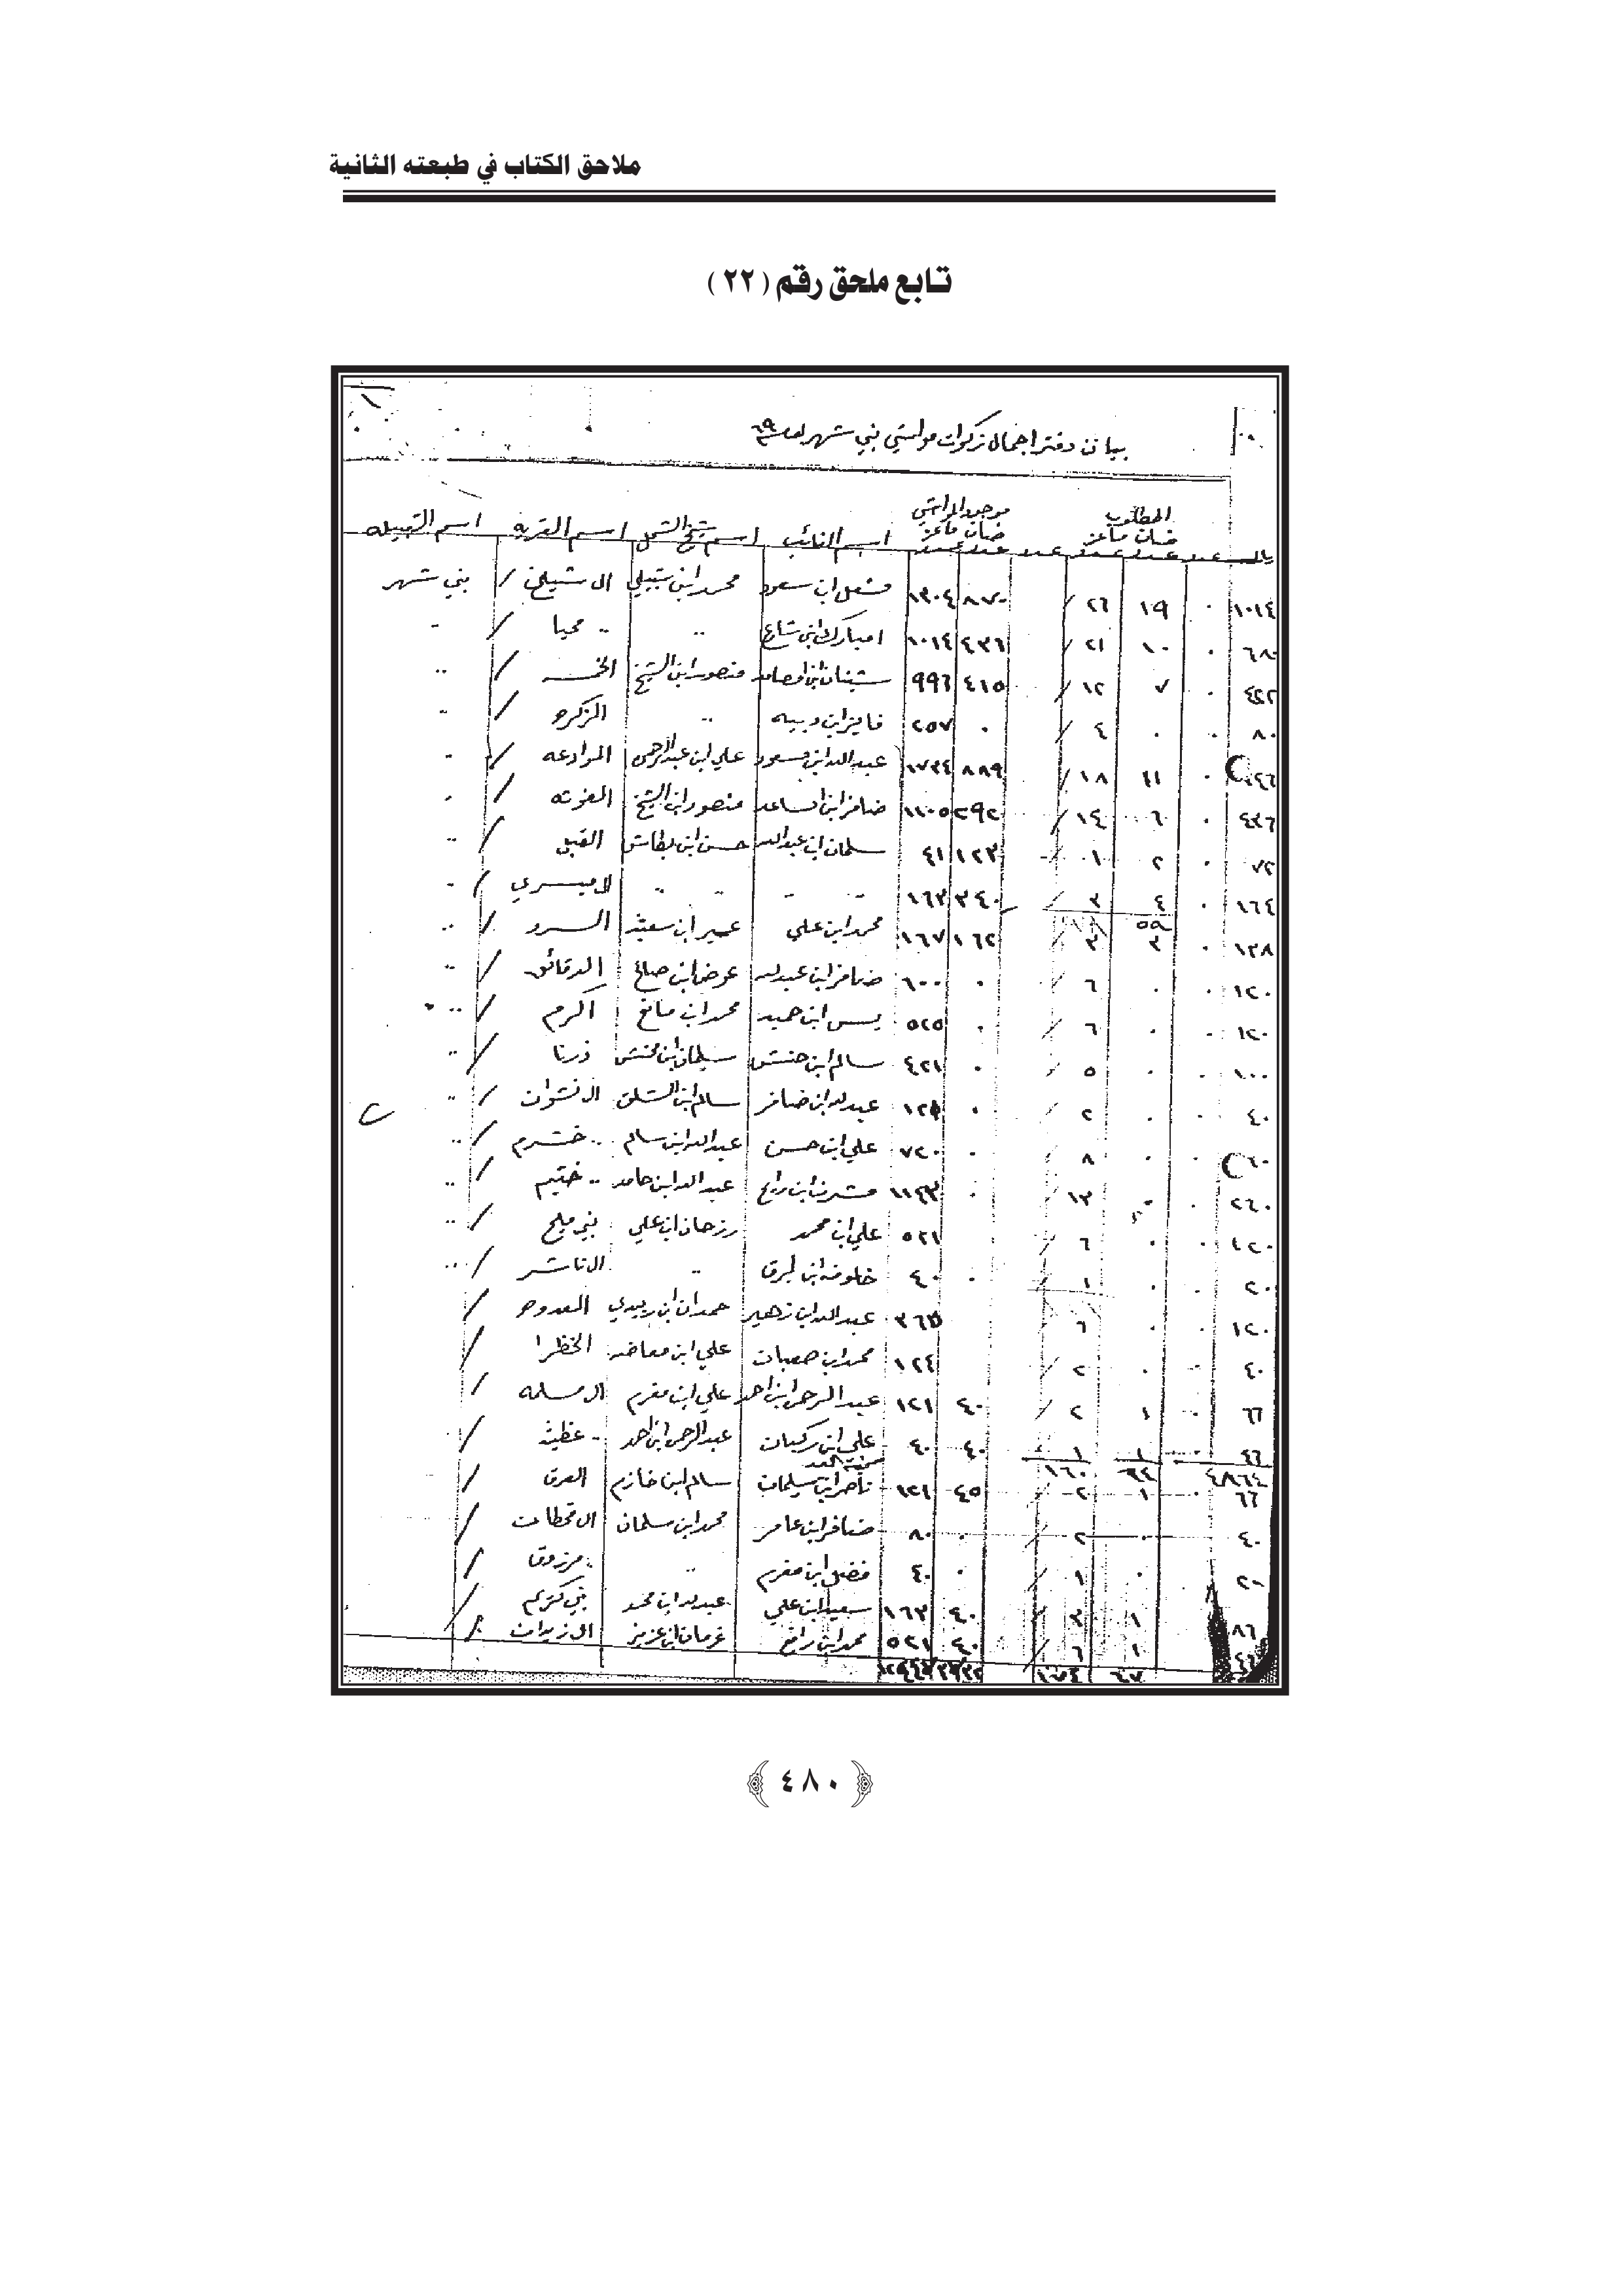 ملاحق الكتاب في طبعته الثانية
تابع ملحق رقم (٢٢)
بيان دفتر اجمال زكوات مواشي بني شهر لعام ٦٩
المطلوب موجود المواشي
ضان ماعز ضان ماعز
ريال عدد عدد عدد عدد عدد عدد اسم النائب اسم شيخ الشمل اسم القريه اسم القبيله
١٠١٤ ٠ ١٩ ٢٦ / ٨٧٠ ١٣٠٤ مشعل ابن سعود محمد ابن شبيلي ال شيلخ / بني شهر
٦٨٠ ٠ ١٠ ٢١ / ٤٣٦ ١٠١٤ امبارك ابن شايع .. .. محيا / ..
٤٢٢ ٠ ٧ ١٢ / ٤١٥ ٩٩٦ منصور ابن الشيخ / ..
٨٠ ٠ ٠ ٤ / ٠ ٢٥٧ فايز ابن دبيه .. الزكره / ..
٠ ١١ ١٨ / ٨٨٩ ١٧٣٤ عبدالله ابن مسعود علي ابن عبدالرحمن الموادعه / ..
٤٣٦ ٠ ٦ ١٤ / ٢٩٢ ١١٠٥ ضافر ابن مساعد منصور ابن الشيخ / ..
٧٢ ٠ ٢ ١ ١٢٣ ٤١ سلمان ابن عبدالله حسن ابن بطاش القبل / ..
١٦٤ ٠ ٤ ٣ / ٣٤٠ ١٦٣ .. .. .. .. ال ميسري / ..
٥٩
١٣٨ ٠ ٣ ٣ / ١٦٢ ١٦٧ محمد ابن علي عمير ابن سعيد السرو / ..
١٢٠ ٠ ٠ ٦ / ٠ ٦٠٠ ضافر ابن عبدالله عوض ابن صالح الدقائق / ..
١٢٠ ٠ ٠ ٦ / ٠ ٥٢٥ يسن ابن حميد محمد ابن مانع الرم / ..
١٠٠ ٠ ٠ ٥ / ٠ ٤٢١ سالم ابن حنتش سليمان ابن حنتش ذرنا / ..
٤٠ ٠ ٠ ٢ / ٠ عبدالله ابن ضافر سالم ابن الشلق ال نشوان / ..
٠ ٠ ٨ / ٠ ٧٢٠ علي ابن حسن عبدالله ابن سالم .. خشرم / ..
٢٦٠ ٠ ٠ ١٣ / ٠ ١١٤٣ مشرف ابن رايح عبدالله ابن حامد .. ختيم / ..
١٢٠ ٠ ٠ ٦ / ٥٢١ علي ابن محمد رزحان ابن علي بني مليح / ..
٢٠ ٠ ٠ ١ / ٠ ٤٠ خلوفه ابن لبرق .. ال ناشر / ..
١٢٠ ٠ ٠ ٦ عبدالله ابن زهير حمدان ابن زبيدي العدوه /
٤٠ ٠ ٠ ٢ / ١٢٤ محمد ابن صعبان علي ابن معاضه الخظرا /
٦٦ ٠ ١ ٢ / ٤٠ ١٢١ عبدالرحمن ابن احمد علي ابن مقرم ال مسلمه /
٤٦ ٠ ١ ١ ٤٠ ٤٠ علي ابن ركبان عبدالرحمن ابن احمد .. عظيه /
٤٨٦٤ ٦٤ ١٦٠
٦٦ ٠ ١ ٢ / ٤٥ ١٢١ ناصر ابن سليمان سالم ابن خازم العرق /
٤٠ ٠ ٢ / ٠ ٨٠ ضافر ابن عامر محمد ابن سلمان ال قحطان /
٢٠ ٠ ١ / ٠ ٤٠ فضل ابن مقرم .. .. مرزوق /
٨٦ ١ ٣ / ٤٠ ١٦٣ سعيد ابن علي عبدالله ابن محمد بني كريم /
١ ٦ / ٤٠ ٥٢١ محمد ابن رافع غرمان ابن عزيز ال زيدان /
٦٧ ١٧٤
٤٨٠